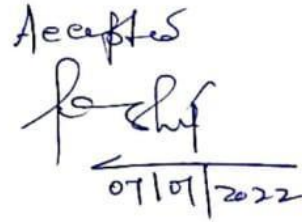 Accepted
07/07/2022